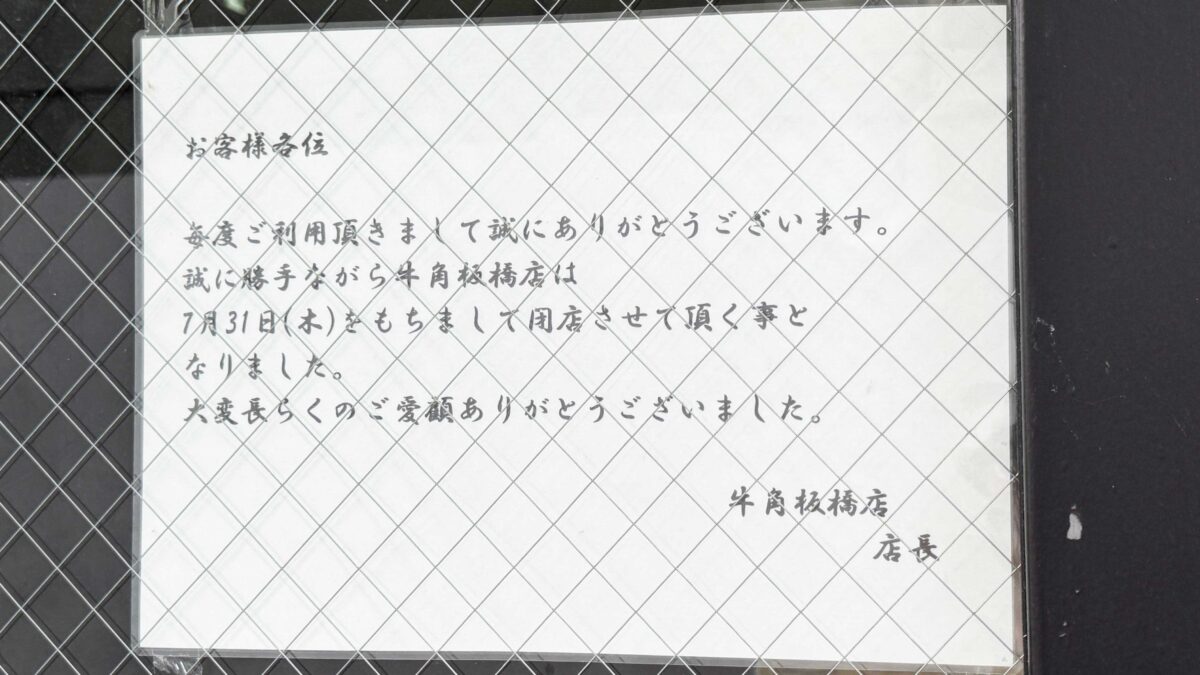 お客様各位
毎度ご利用頂きまして誠にありがとうございます。
誠に勝手ながら牛角板橋店は
7月31日(木)をもちまして閉店させて頂く事と
なりました。
大変長らくのご愛顧ありがとうございました。
牛角板橋店
店長